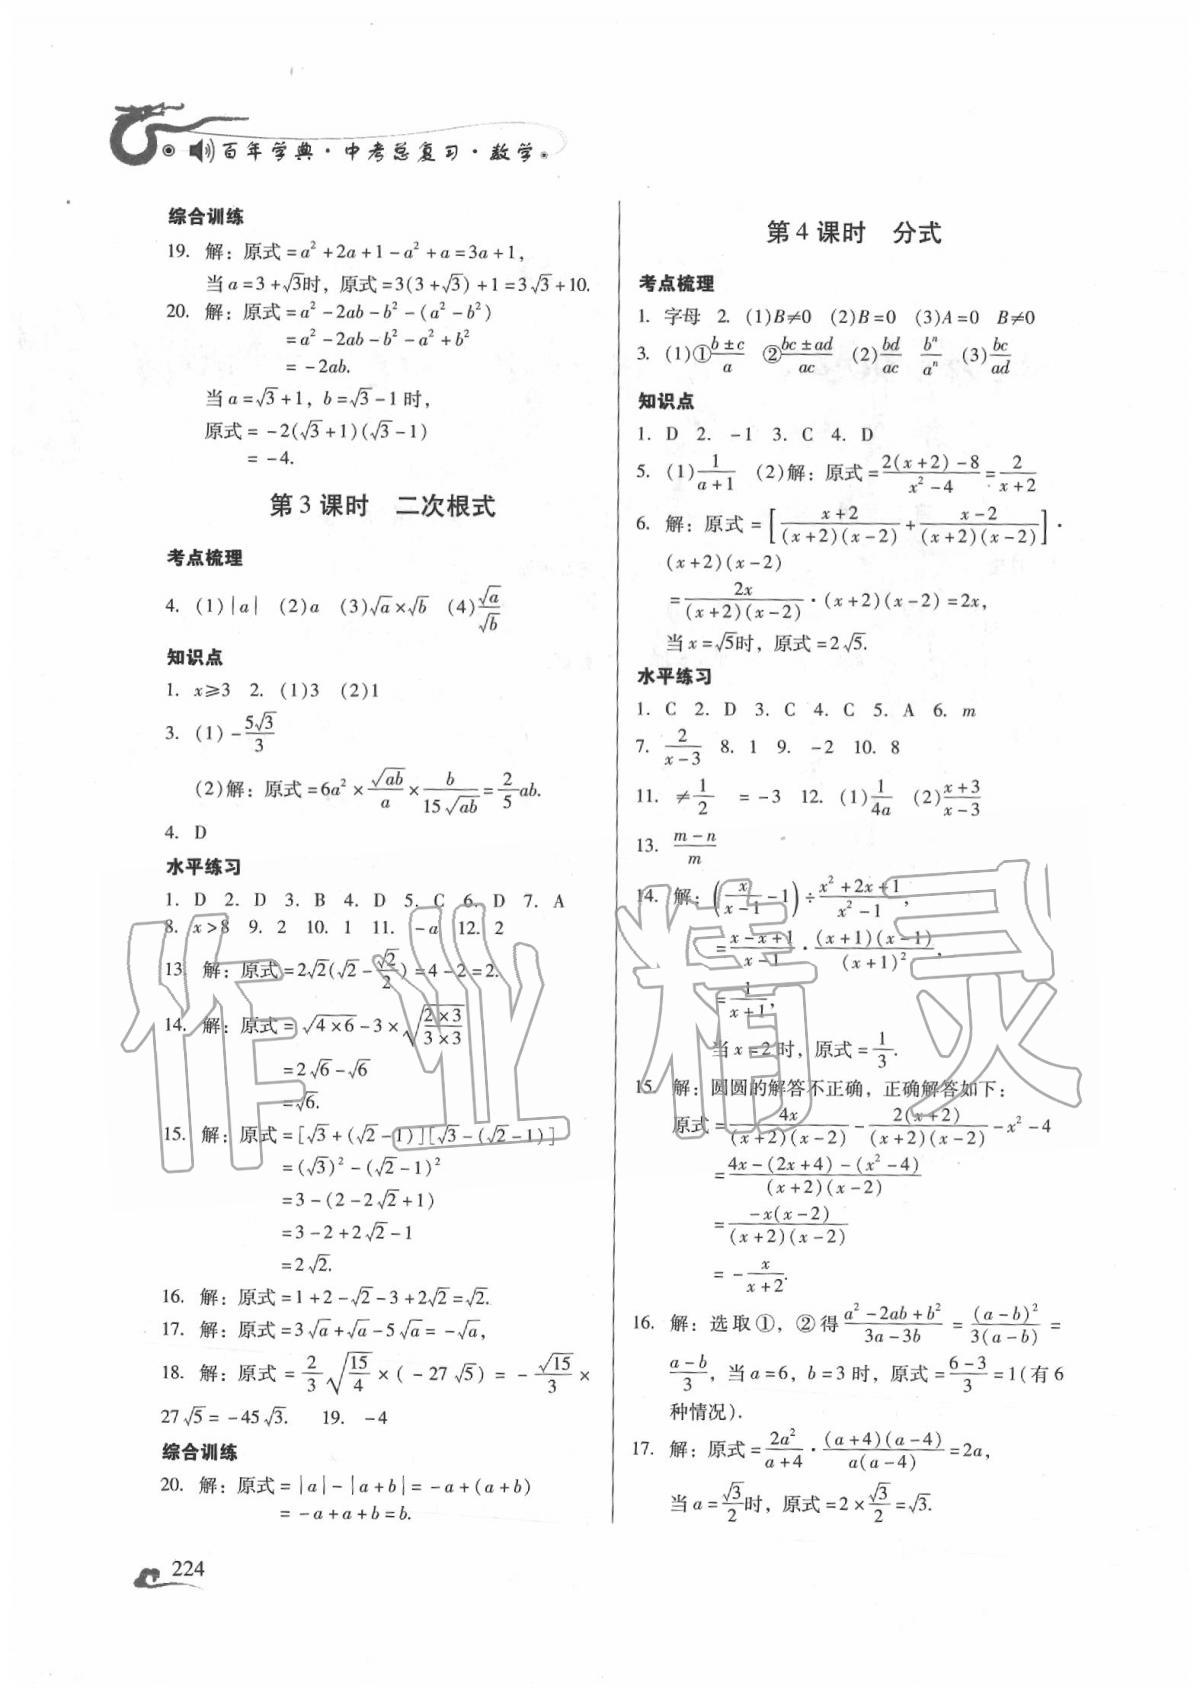 百年学典·中考总复习·数学
综合训练
19. 解：原式=a²+2a+1-a²+a=3a+1，
当a=3+√3时，原式=3(3+√3)+1=3√3+10.
20. 解：原式=a²-2ab-b²-(a²-b²)
=a²-2ab-b²-a²+b²
=-2ab.
当a=√3+1，b=√3-1时，
原式=-2(√3+1)(√3-1)
=-4.
第3课时 二次根式
考点梳理
4. (1)|a| (2)a (3)√a×√b (4)√a/√b
知识点
1. x≥3 2. (1)3 (2)1
3. (1)-5√3/3
(2)解：原式=6a²×√ab/a×b/15√ab=2/5ab.
4. D
水平练习
1. D 2. D 3. B 4. D 5. C 6. D 7. A
8. x>8 9. 2 10. 1 11. -a 12. 2
13. 解：原式=2√2(√2-√2/2)=4-2=2.
14. 解：原式=√(4×6)-3×√((2×3)/(3×3))
=2√6-√6
=√6.
15. 解：原式=[√3+(√2-1)][√3-(√2-1)]
=(√3)²-(√2-1)²
=3-(2-2√2+1)
=3-2+2√2-1
=2√2.
16. 解：原式=1+2-√2-3+2√2=√2.
17. 解：原式=3√a+√a-5√a=-√a，
18. 解：原式=2/3√(15/4)×(-27√5)=-√15/3×
27√5=-45√3. 19. -4
综合训练
20. 解：原式=|a|-|a+b|=-a+(a+b)
=-a+a+b=b.
224
第4课时 分式
考点梳理
1. 字母 2. (1)B≠0 (2)B=0 (3)A=0 B≠0
3. (1)①(b±c)/a ②(bc±ad)/ac (2)bd/ac bⁿ/aⁿ (3)bc/ad
知识点
1. D 2. -1 3. C 4. D
5. (1)1/(a+1) (2)解：原式=(2(x+2)-8)/(x²-4)=2/(x+2)
6. 解：原式=[(x+2)/((x+2)(x-2))+(x-2)/((x+2)(x-2))]·
(x+2)(x-2)
=2x/((x+2)(x-2))·(x+2)(x-2)=2x，
当x=√5时，原式=2√5.
水平练习
1. C 2. D 3. C 4. C 5. A 6. m
7. 2/(x-3) 8. 1 9. -2 10. 8
11. ≠1/2 =-3 12. (1)1/4a (2)(x+3)/(x-3)
13. (m-n)/m
14. 解：(x/(x-1)-1)÷(x²+2x+1)/(x²-1)，
=(x-x+1)/(x-1)·((x+1)(x-1))/(x+1)²，
=1/(x+1)，
当x=2时，原式=1/3.
15. 解：圆圆的解答不正确，正确解答如下：
原式=4x/((x+2)(x-2))-2(x+2)/((x+2)(x-2))-x²-4
=(4x-(2x+4)-(x²-4))/((x+2)(x-2))
=-x(x-2)/((x+2)(x-2))
=-x/(x+2).
16. 解：选取①，②得(a²-2ab+b²)/(3a-3b)=(a-b)²/(3(a-b))=
(a-b)/3，当a=6，b=3时，原式=(6-3)/3=1(有6
种情况).
17. 解：原式=2a²/(a+4)·((a+4)(a-4))/(a(a-4))=2a，
当a=√3/2时，原式=2×√3/2=√3.
作业精灵